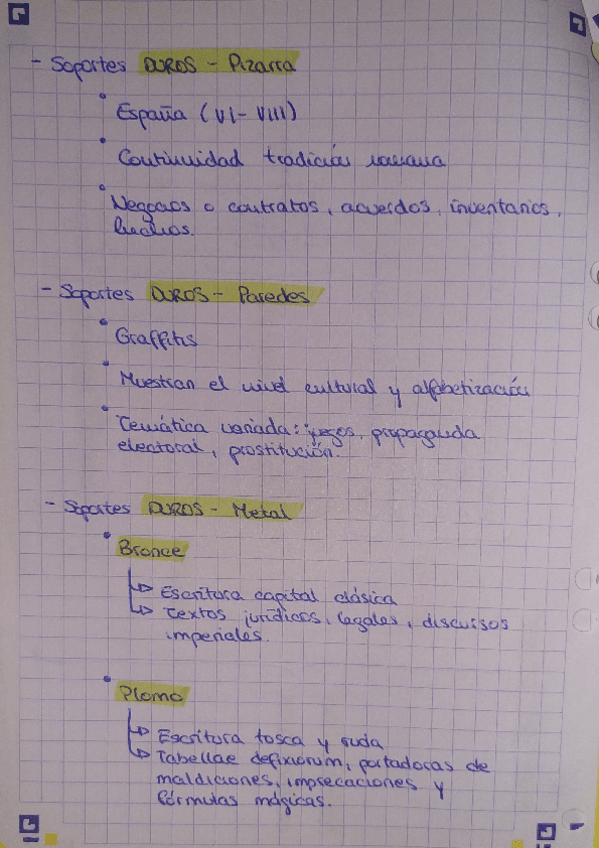 - Soportes DUROS - Pizarra
• España (VI - VIII)
• Continuidad tradición romana
• Negocios o contratos, acuerdos, inventarios,
hechos.
- Soportes DUROS - Paredes
• Graffitis
• Muestran el nivel cultural y alfabetización
• Temática variada: juegos, propaganda
electoral, prostitución.
- Soportes DUROS - Metal
• Bronce
↳ Escritura capital clásica
↳ Textos jurídicos, legales, discursos
imperiales.
• Plomo
↳ Escritura tosca y ruda
↳ Tabellae defixiorum, portadoras de
maldiciones, imprecaciones y
fórmulas mágicas.